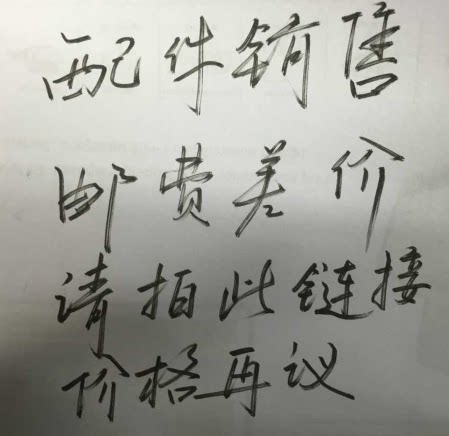 配件销售
邮费差价
请拍此链接
价格再议